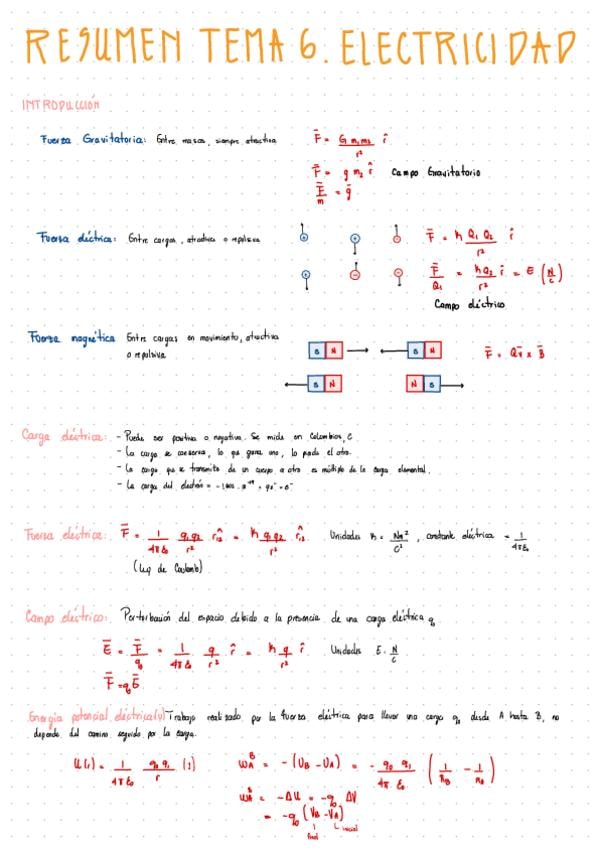 RESUMEN TEMA 6. ELECTRICIDAD
INTRODUCCIÓN
Fuerza Gravitatoria: Entre masas, siempre atractiva F̄ = G m₁m₂ / r² r̂
F̄ = g m₂ r̂ Campo Gravitatorio
F̄ / m = ḡ
Fuerza eléctrica: Entre cargas, atractiva o repulsiva F̄ = K Q₁ Q₂ / r² r̂
F̄ / Q₁ = K Q₂ / r² r̂ = E (N/C)
Campo eléctrico
Fuerza magnética Entre cargas en movimiento, atractiva
o repulsiva F̄ = Qv̄ x B̄
S N S N
S N N S
Carga eléctrica: - Puede ser positiva o negativa. Se mide en Colombios, C
- La carga se conserva, lo que gana uno, lo pierde el otro.
- La carga que se transmite de un cuerpo a otro es múltiplo de la carga elemental.
- La carga del electrón =
Fuerza eléctrica: F̄ = 1/4πε₀ q₁q₂/r² r̂₁₂ = K q₁q₂/r² r̂₁₂ Unidades K = Nm²/C² , constante eléctrica = 1/4πε₀
(Ley de Coulomb)
Campo eléctrico: Perturbación del espacio debido a la presencia de una carga eléctrica q₀
Ē = F̄/q₀ = 1/4πε₀ q/r² r̂ = K q/r² r̂ Unidades E: N/C
F̄ = q₀Ē
Energía potencial eléctrica(U) Trabajo realizado por la fuerza eléctrica para llevar una carga q₀ desde A hasta B, no
depende del camino seguido por la carga.
U(r) = 1/4πε₀ q₀q₁/r (J) W_A^B = -(U_B - U_A) = - q₀ q₁/4πε₀ (1/r_B - 1/r_A)
W_A^B = -ΔU = -q₀ ΔV
= -q₀ (V_B - V_A)
final inicial